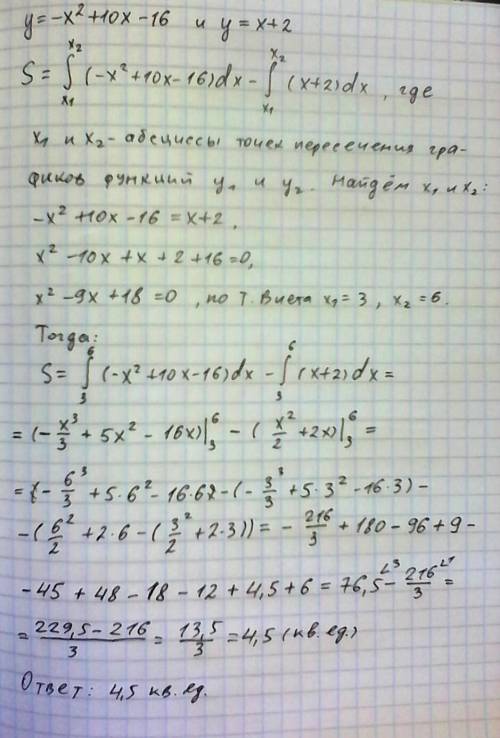 y=-x²+10x-16 и y=x+2
S= ∫_{x₁}^{x₂} (-x²+10x-16)dx - ∫_{x₁}^{x₂} (x+2)dx, где
x₁ и x₂ - абсциссы точек пересечения гра-
фиков функций y₁ и y₂. Найдём x₁ и x₂:
-x²+10x-16=x+2,
x²-10x+x+2+16=0,
x²-9x+18=0, по т. Виета x₁=3, x₂=6.
Тогда:
S= ∫_{3}^{6} (-x²+10x-16)dx - ∫_{3}^{6} (x+2)dx=
=(-x³/3+5x²-16x)|₃⁶ - (x²/2+2x)|₃⁶=
=(-6³/3+5·6²-16·6)-(-3³/3+5·3²-16·3)-
-(6²/2+2·6-(3²/2+2·3))=-216/3+180-96+9-
-45+48-18-12+4,5+6=76,5^{∠3}-216^{∠1}/3=
=(229,5-216)/3=13,5/3=4,5 (кв.ед.)
Ответ: 4,5 кв.ед.